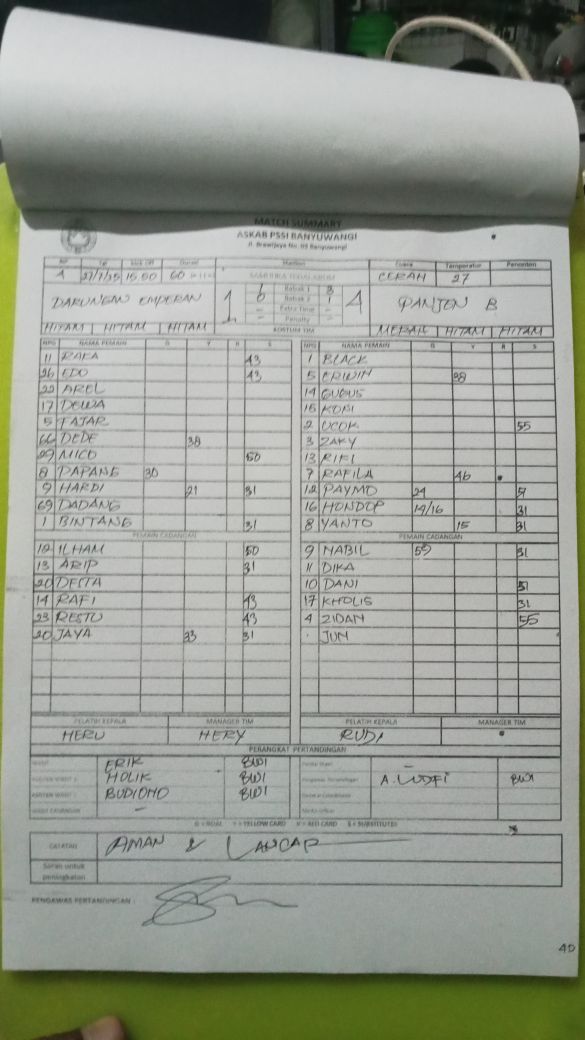 MATCH SUMMARY
ASKAB PSSI BANYUWANGI
Jl. Brawijaya No. Banyuwangi
NP Tgl Kick Off Durasi Stadion Cuaca Temperatur Penonton
A 27/7/25 15.50 60 CERAH 27
DARUNGAN EMPERAN 1 1 Babak 1 3 4 PANJEN B
0 Babak 2 1
- Extra Time -
- Penalty -
HITAM HITAM HITAM KOSTUM TIM MERAH HITAM HITAM
NPG NAMA PEMAIN G Y R S NPG NAMA PEMAIN G Y R S
11 RAKA 43 1 BLACK
26 EDO 43 5 ERWIN 28
22 AREL 14 GUGUS
17 DEWA 15 KOBI
5 FAJAR 2 UCOK 55
66 DEDE 38 3 ZAKY
29 MICO 50 13 RIFI
8 PAPANG 30 7 RAFILA 46
9 HARDI 21 31 12 PAYMO 24 51
69 DADANG 16 HONDOP 14/16 31
1 BINTANG 31 8 YANTO 15 31
PEMAIN CADANGAN PEMAIN CADANGAN
12 ILHAM 50 9 NABIL 59 31
13 ARIP 31 11 DIKA
20 DESTA 10 DANI 51
14 RAFI 43 17 KHOLIS 31
23 RESTU 43 4 ZIDAN 55
20 JAYA 33 31 JUN
PELATIH KEPALA MANAGER TIM PELATIH KEPALA MANAGER TIM
HERU HERY RUDI
PERANGKAT PERTANDINGAN
ERIK BWI -
HOLIK BWI Pengawas Pertandingan A. LUDFI BWI
BUDIONO BWI
-
G = GOAL Y = YELLOW CARD R = RED CARD S = SUBSTITUTES
CATATAN AMAN & LANCAR
Saran untuk peningkatan
PENGAWAS PERTANDINGAN :